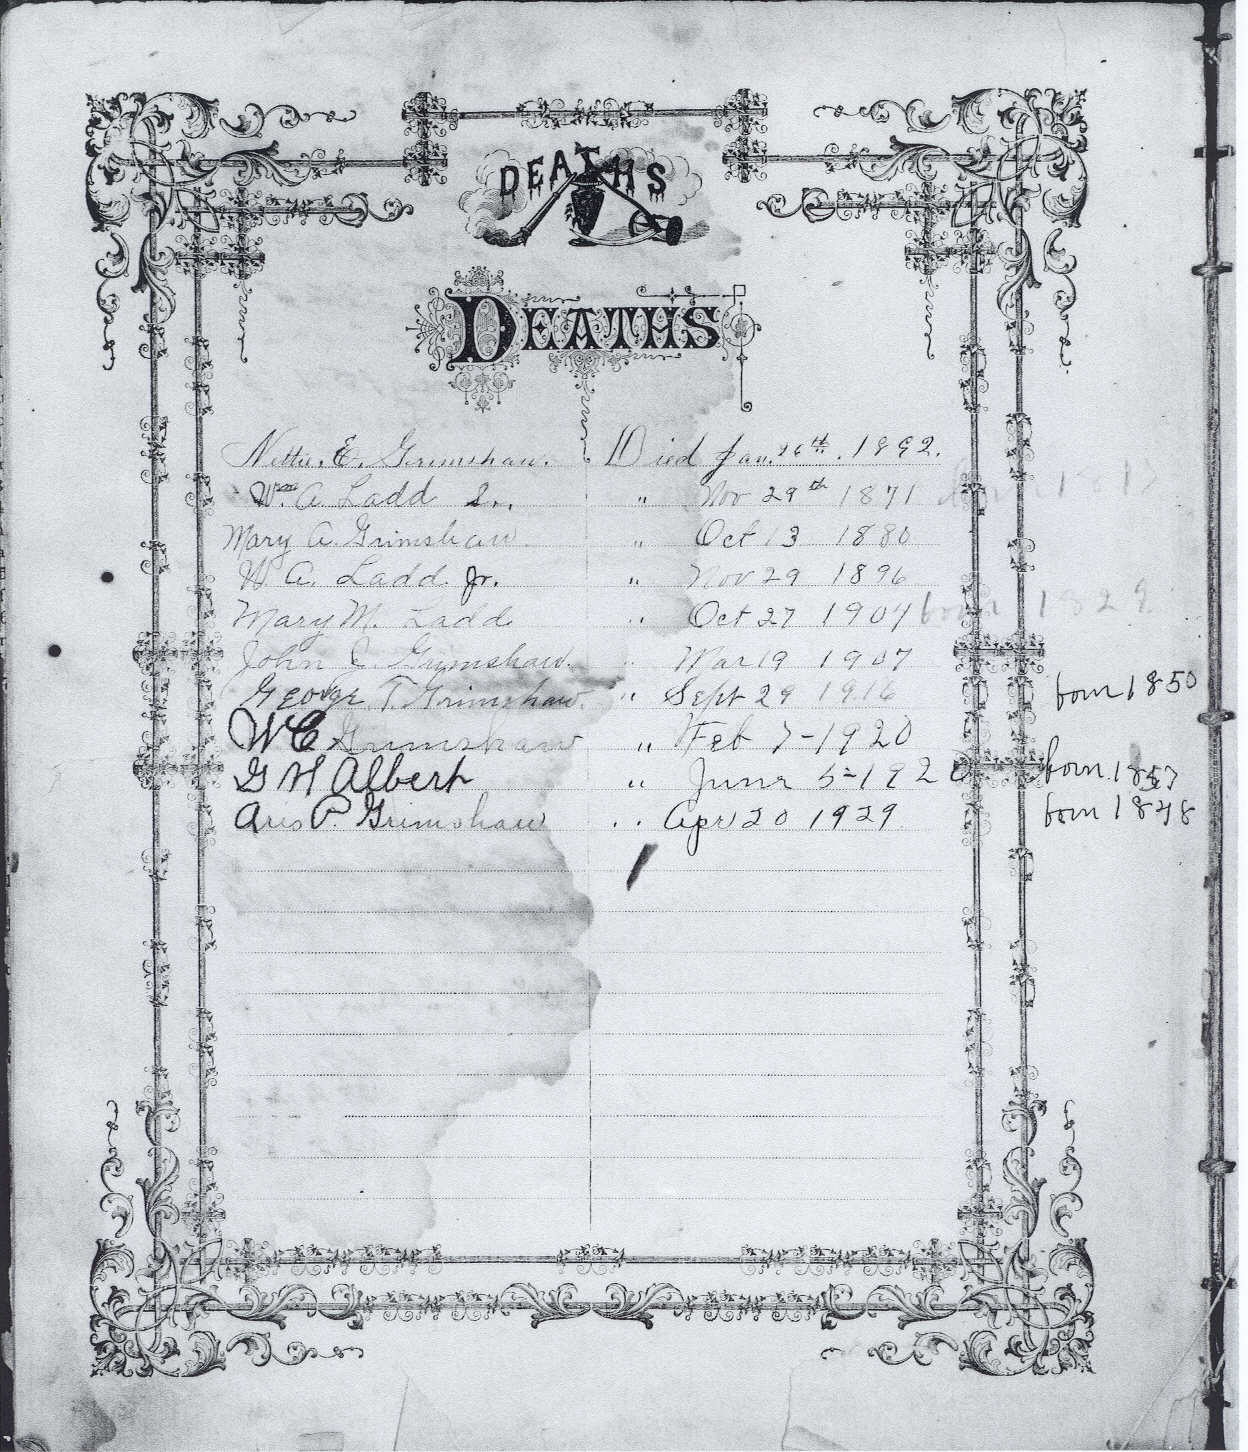 DEATHS
DEATHS
Nettie. E. Grimshaw. Died Jan. 26th. 1892.
Wm A. Ladd Sr. " Nov 29th 1871 born 1812
Mary A. Grimshaw " Oct 13 1880
W. A. Ladd. Jr. " Nov 29 1896
Mary M. Ladd " Oct 27 1904 born 1829
John C. Grimshaw. " Mar 19 1907
George T. Grimshaw. " Sept 29 1916 born 1850
W C Grimshaw " Feb 7-1920
G H Albert " June 5-192 born. 1857
P. Grimshaw " Apr 20 1929 born 1848